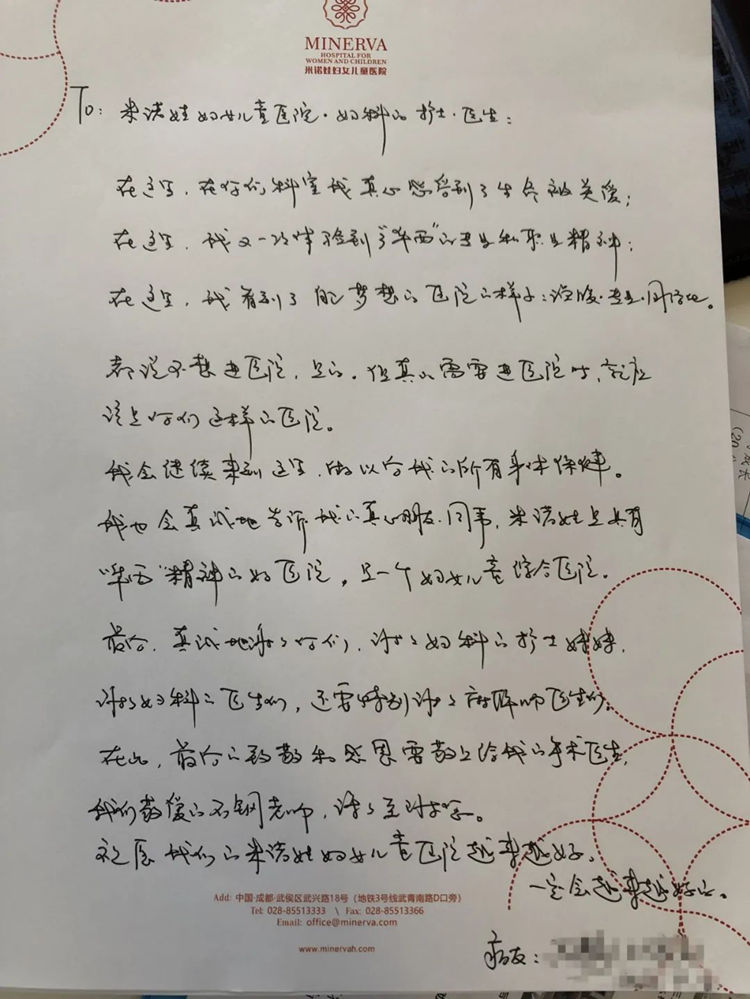 MINERVA
HOSPITAL FOR
WOMEN AND CHILDREN
米诺娃妇女儿童医院
To: 米诺娃妇女儿童医院·妇科的护士·医生:
在这里,在你们科室我真心感受到了生命被关爱;
在这里,我又一次体验到了“华西”的专业和职业精神;
在这里,我看到了我梦想的医院的样子:温暖·专业·
都说不想进医院,是的。但真的需要进医院时,就应
该是你们这样的医院。
我会继续来到这里,做以后我的所有身体保健。
我也会真诚地告诉我的真心朋友、同事,米诺娃是具有
“华西”精神的好医院,是一个妇女儿童综合医院。
最后,真诚地谢谢你们,谢谢妇科的护士妹妹,
谢谢妇科的医生们,还要特别谢谢麻醉师医生们。
在此,最后的致敬和感恩要敬上给我的手术医生,
我们敬爱的石钢老师,谢谢
祝愿我们的米诺娃妇女儿童医院越来越好。
一定会越来越好的。
病友:
Add: 中国·成都·武侯区武兴路18号(地铁3号线武青南路D口旁)
Tel: 028-85513333 \ Fax: 028-85513366
Email: office@minerva.com
www.minervah.com